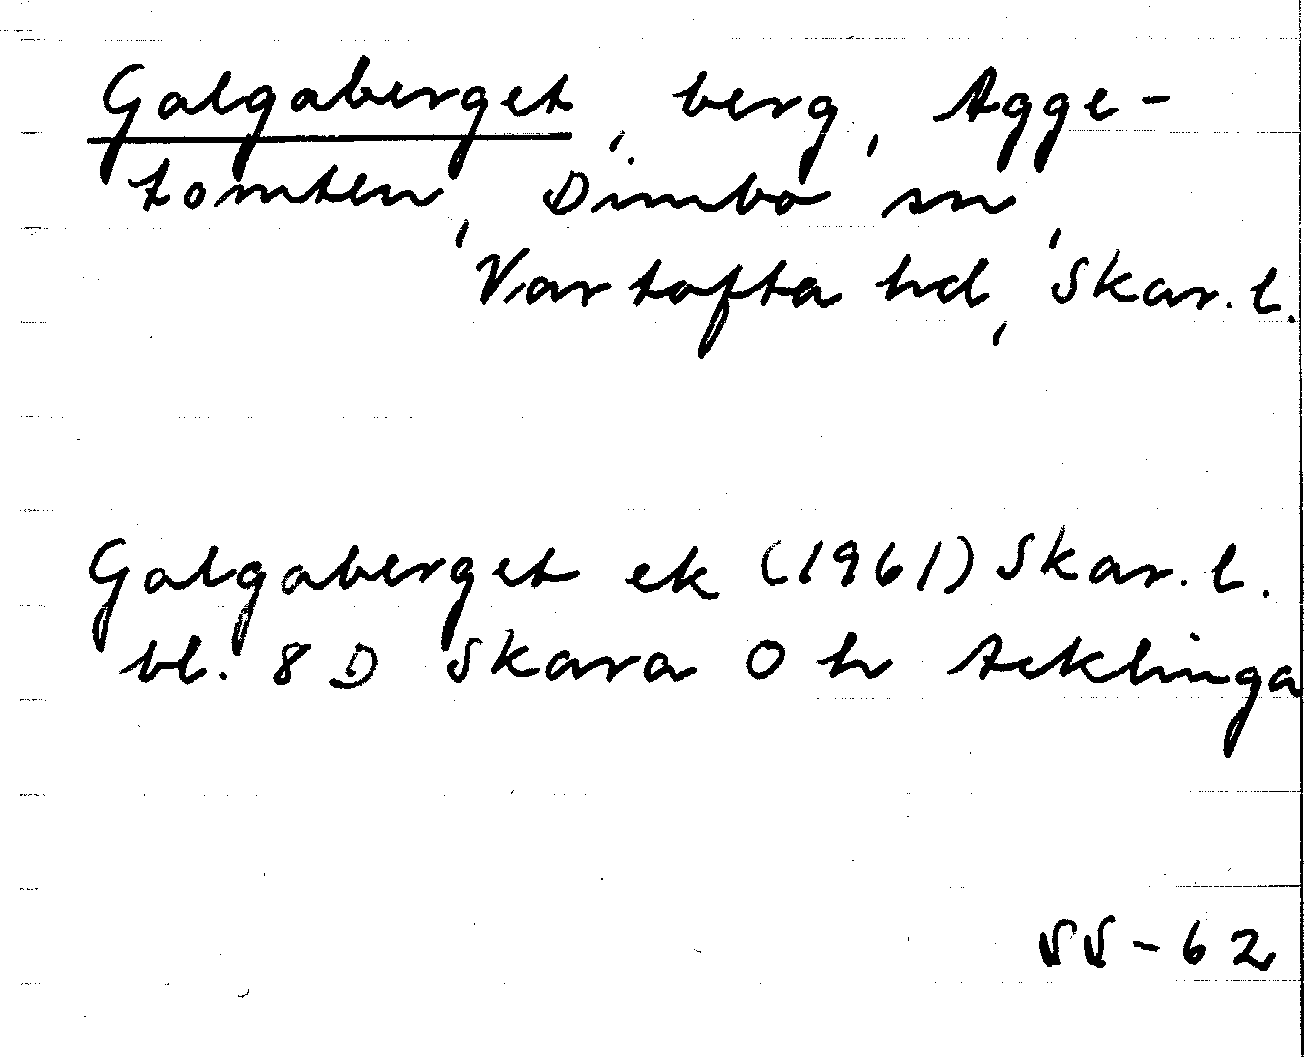 Galgaberget, berg, Agge-
tomten, Dimbo sn,
Vartofta hd, Skar. l.
Galgaberget ek (1961) Skar. l.
bl. 8 D Skara 0 h Acklinga
SS-62